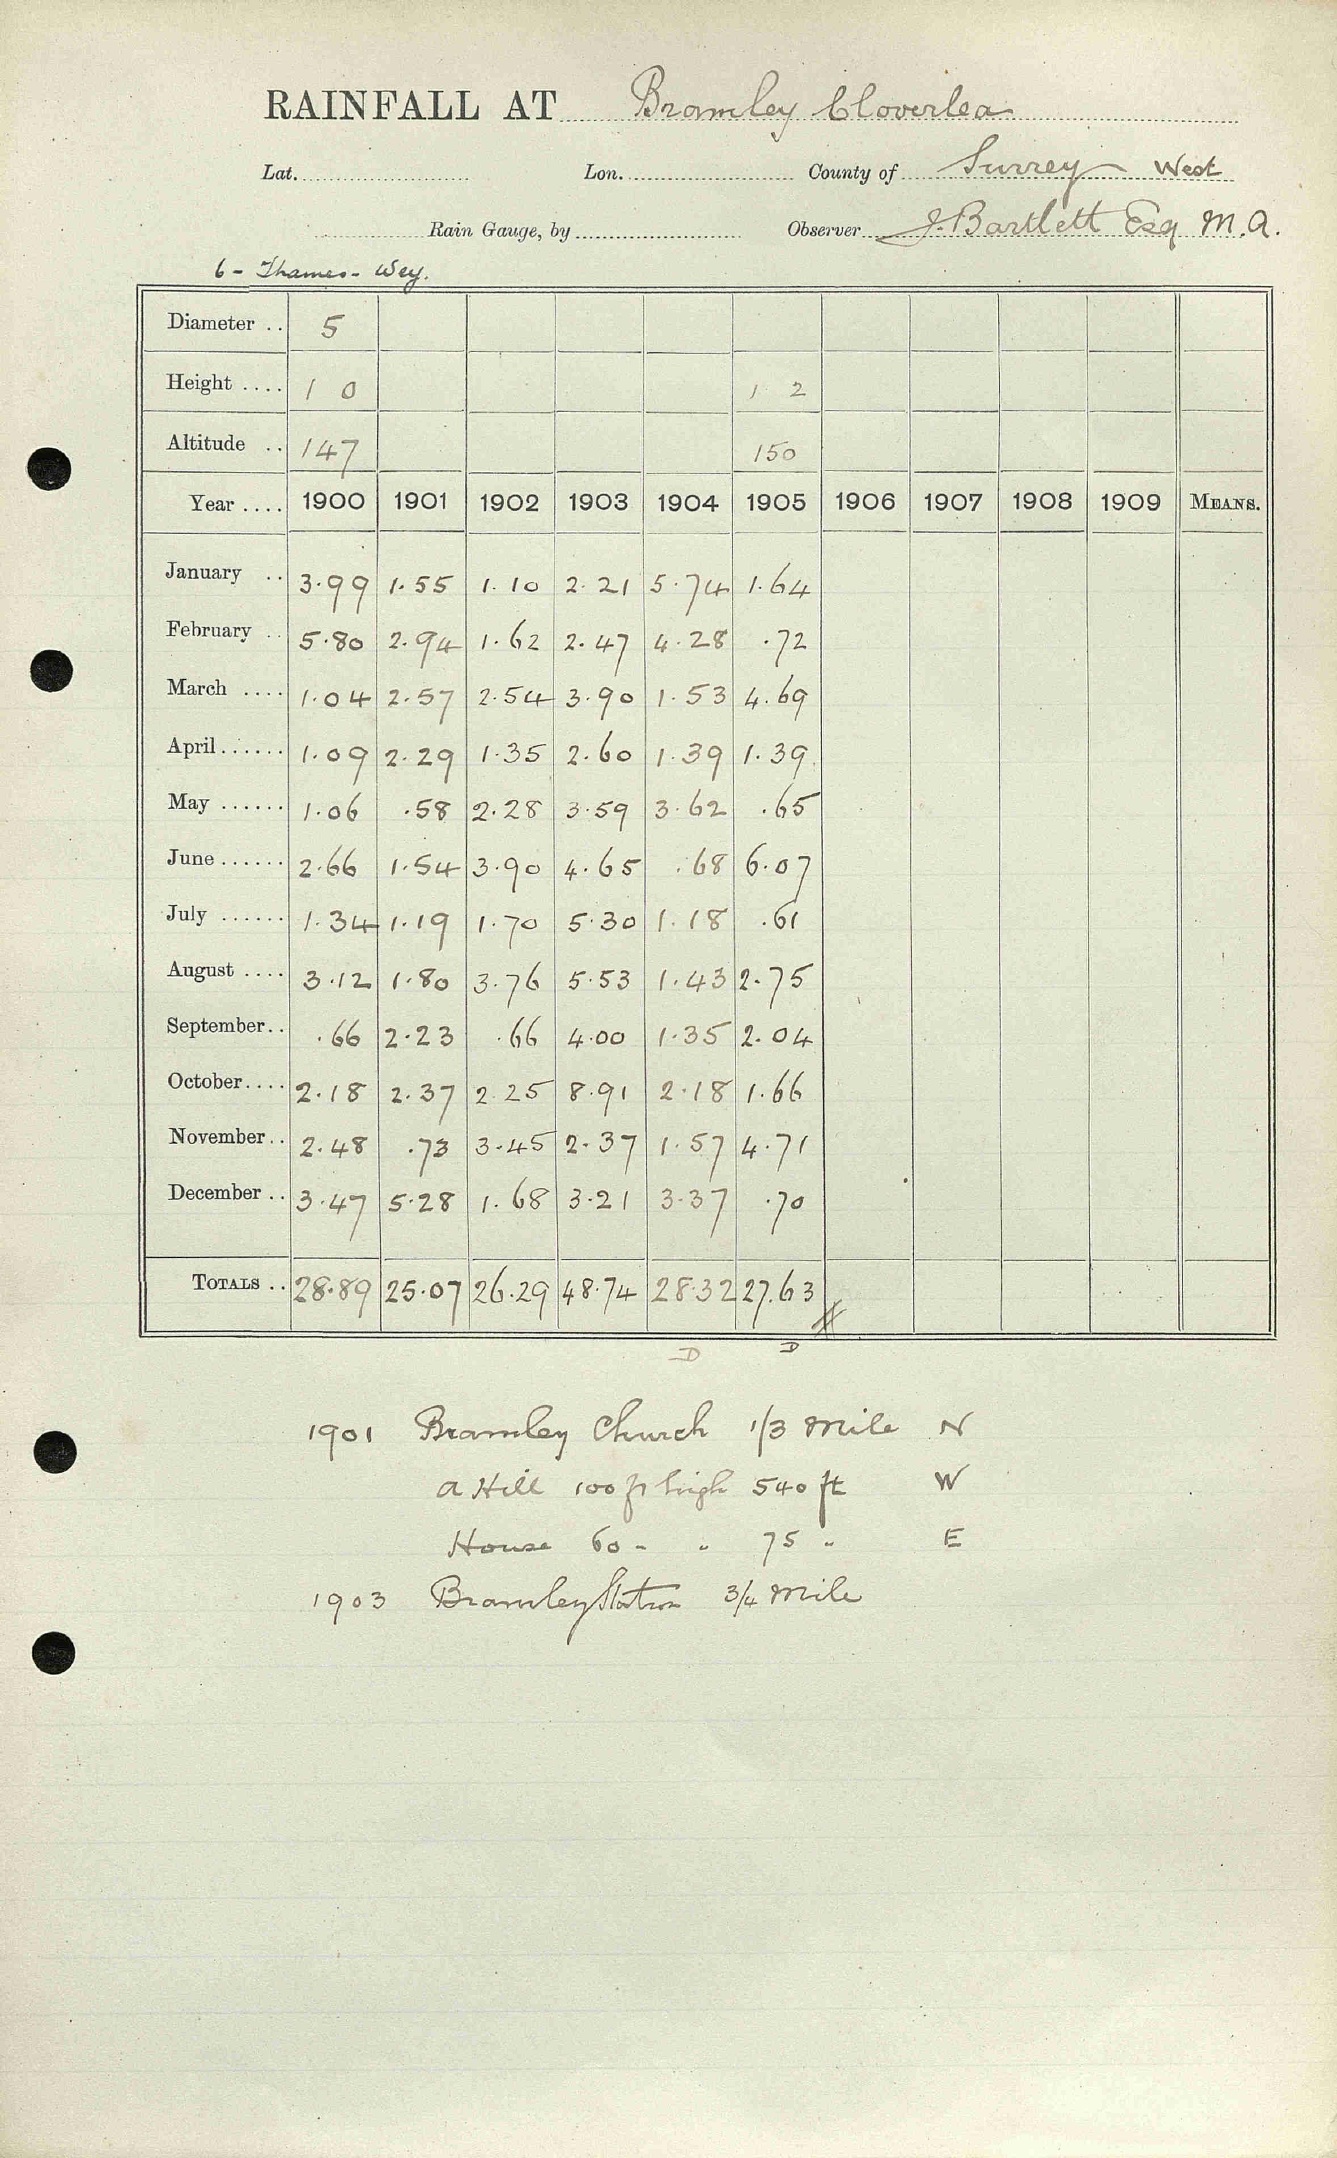 RAINFALL AT Bramley Cloverlea
Lat. Lon. County of Surrey West
Rain Gauge, by Observer J. Bartlett Esq M.A.
6 - Thames - Wey.
Diameter .. 5
Height .... 1 0 1 2
Altitude .. 147 150
Year .... 1900 1901 1902 1903 1904 1905 1906 1907 1908 1909 MEANS.
January .. 3.99 1.55 1.10 2.21 5.74 1.64
February .. 5.80 2.94 1.62 2.47 4.28 .72
March .... 1.04 2.57 2.54 3.90 1.53 4.69
April...... 1.09 2.29 1.35 2.60 1.39 1.39
May ...... 1.06 .58 2.28 3.59 3.62 .65
June...... 2.66 1.54 3.90 4.65 .68 6.07
July ...... 1.34 1.19 1.70 5.30 1.18 .61
August .... 3.12 1.80 3.76 5.53 1.43 2.75
September.. .66 2.23 .66 4.00 1.35 2.04
October.... 2.18 2.37 2.25 8.91 2.18 1.66
November.. 2.48 .73 3.45 2.37 1.57 4.71
December .. 3.47 5.28 1.68 3.21 3.37 .70
TOTALS .. 28.89 25.07 26.29 48.74 28.32 27.63
D D
1901 Bramley Church 1/3 Mile N
a Hill 100 ft high 540 ft W
House 60 - " 75 " E
1903 Bramley Station 3/4 Mile